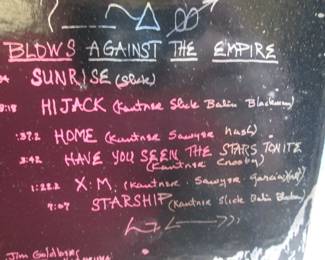 BLOWS AGAINST THE EMPIRE
SUNRISE (Slick)
HIJACK (Kantner Slick Balin Blackman)
:37.2 HOME (Kantner Sawyer Nash)
3:42 HAVE YOU SEEN THE STARS TONITE
(Kantner Crosby)
1:22.2 X.M. (Kantner. Sawyer Garcia
7:07 STARSHIP (Kantner Slick Balin
Jim Goldberg